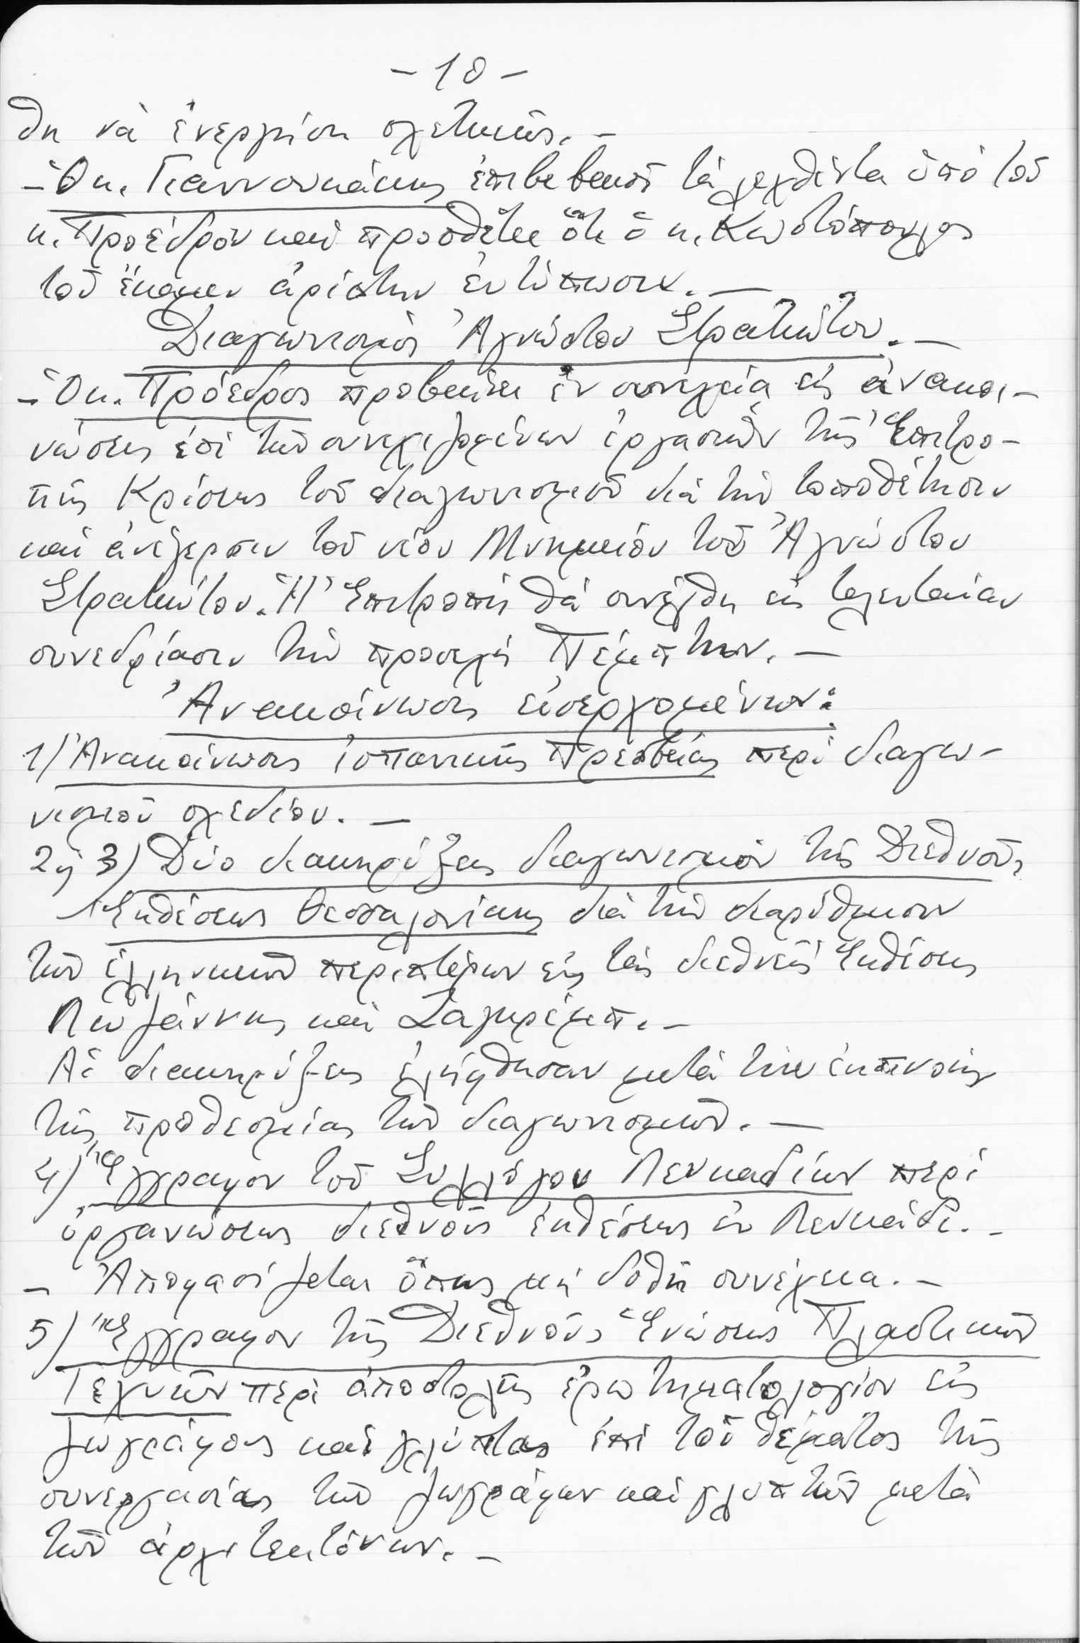 - 10 -
θη νὰ ἐνεργήση σχετικῶς. -
- Ὁ κ. Γιαννουκάκης ἐπιβεβαιοῖ τὰ λεχθέντα ὑπὸ τοῦ
κ. Προέδρου καὶ προσθέτει ὅτι ὁ κ. Κωστόπουλος
τοῦ ἔκαμεν ἀρίστην ἐντύπωσιν. -
Διαγωνισμὸς Ἀγνώστου Στρατιώτου. -
- Ὁ κ. Πρόεδρος προβαίνει ἐν συνεχείᾳ εἰς ἀνακοι-
νώσεις ἐπὶ τῶν συνεχιζομένων ἐργασιῶν τῆς Ἐπιτρο-
πῆς Κρίσεως τοῦ διαγωνισμοῦ διὰ τὴν τοποθέτησιν
καὶ ἀνέγερσιν τοῦ νέου Μνημείου τοῦ Ἀγνώστου
Στρατιώτου. Ἡ Ἐπιτροπὴ θὰ συνέλθη εἰς τελευταίαν
συνεδρίασιν τὴν προσεχῆ Πέμπτην. -
Ἀνακοίνωσις εἰσερχομένων:
1) Ἀνακοίνωσις ἱσπανικῆς Πρεσβείας περὶ διαγω-
νισμοῦ σχεδίου. -
2) ἢ 3) Δύο διακηρύξεις διαγωνισμῶν τῆς Διεθνοῦς
Ἐκθέσεως Θεσσαλονίκης διὰ τὴν διαρύθμισιν
τῶν ἑλληνικῶν περιπτέρων εἰς τὰς διεθνεῖς Ἐκθέσεις
Λωζάννης καὶ Ζάγκρεμπ. -
Αἱ διακηρύξεις ἐλήφθησαν μετὰ τὴν ἐκπνοὴν
τῆς προθεσμίας τῶν διαγωνισμῶν. -
4) Ἔγγραφον τοῦ Συλλόγου Λευκαδίων περὶ
ὀργανώσεως διεθνοῦς ἐκθέσεως ἐν Λευκάδι. -
- Ἀποφασίζεται ὅπως μὴ δοθῆ συνέχεια. -
5) Ἔγγραφον τῆς Διεθνοῦς Ἑνώσεως Πλαστικῶν
Τεχνῶν περὶ ἀποστολῆς ἐρωτηματολογίου εἰς
ζωγράφους καὶ γλύπτας ἐπὶ τοῦ θέματος τῆς
συνεργασίας τῶν ζωγράφων καὶ γλυπτῶν μετὰ
τῶν ἀρχιτεκτόνων. -